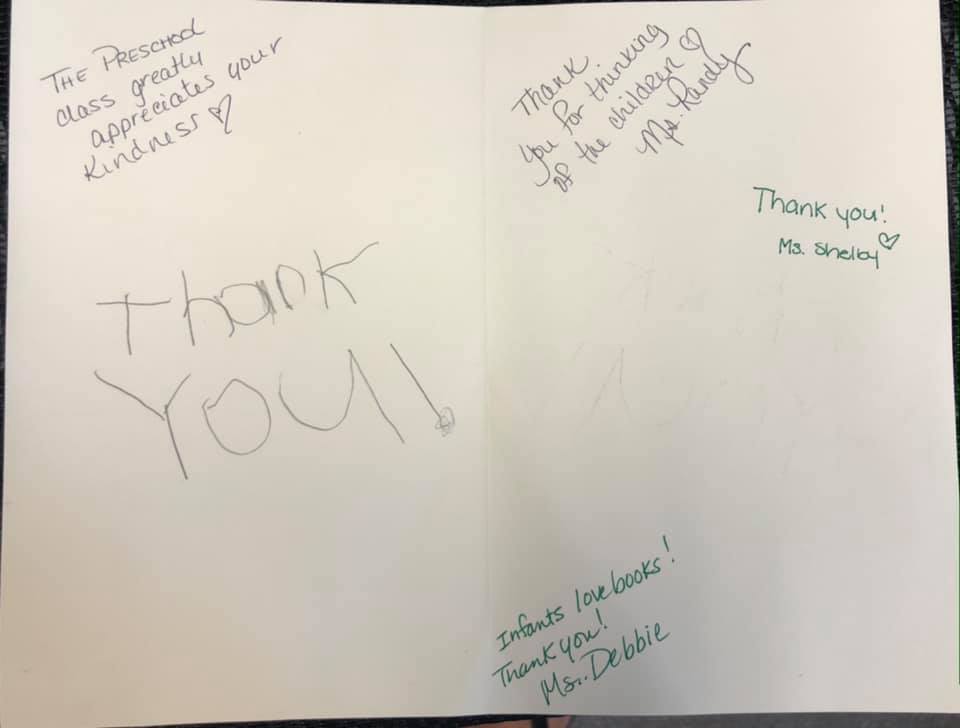 THE PRESCHOOL
class greatly
appreciates your
Kindness
Thank
You!
Thank
you for thinking
of the children
Ms. Randy
Thank you!
Ms. Shelby
Infants love books!
Thank you!
Ms. Debbie